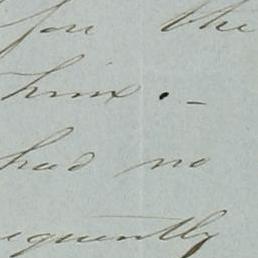 for the
him . -
had no
equently